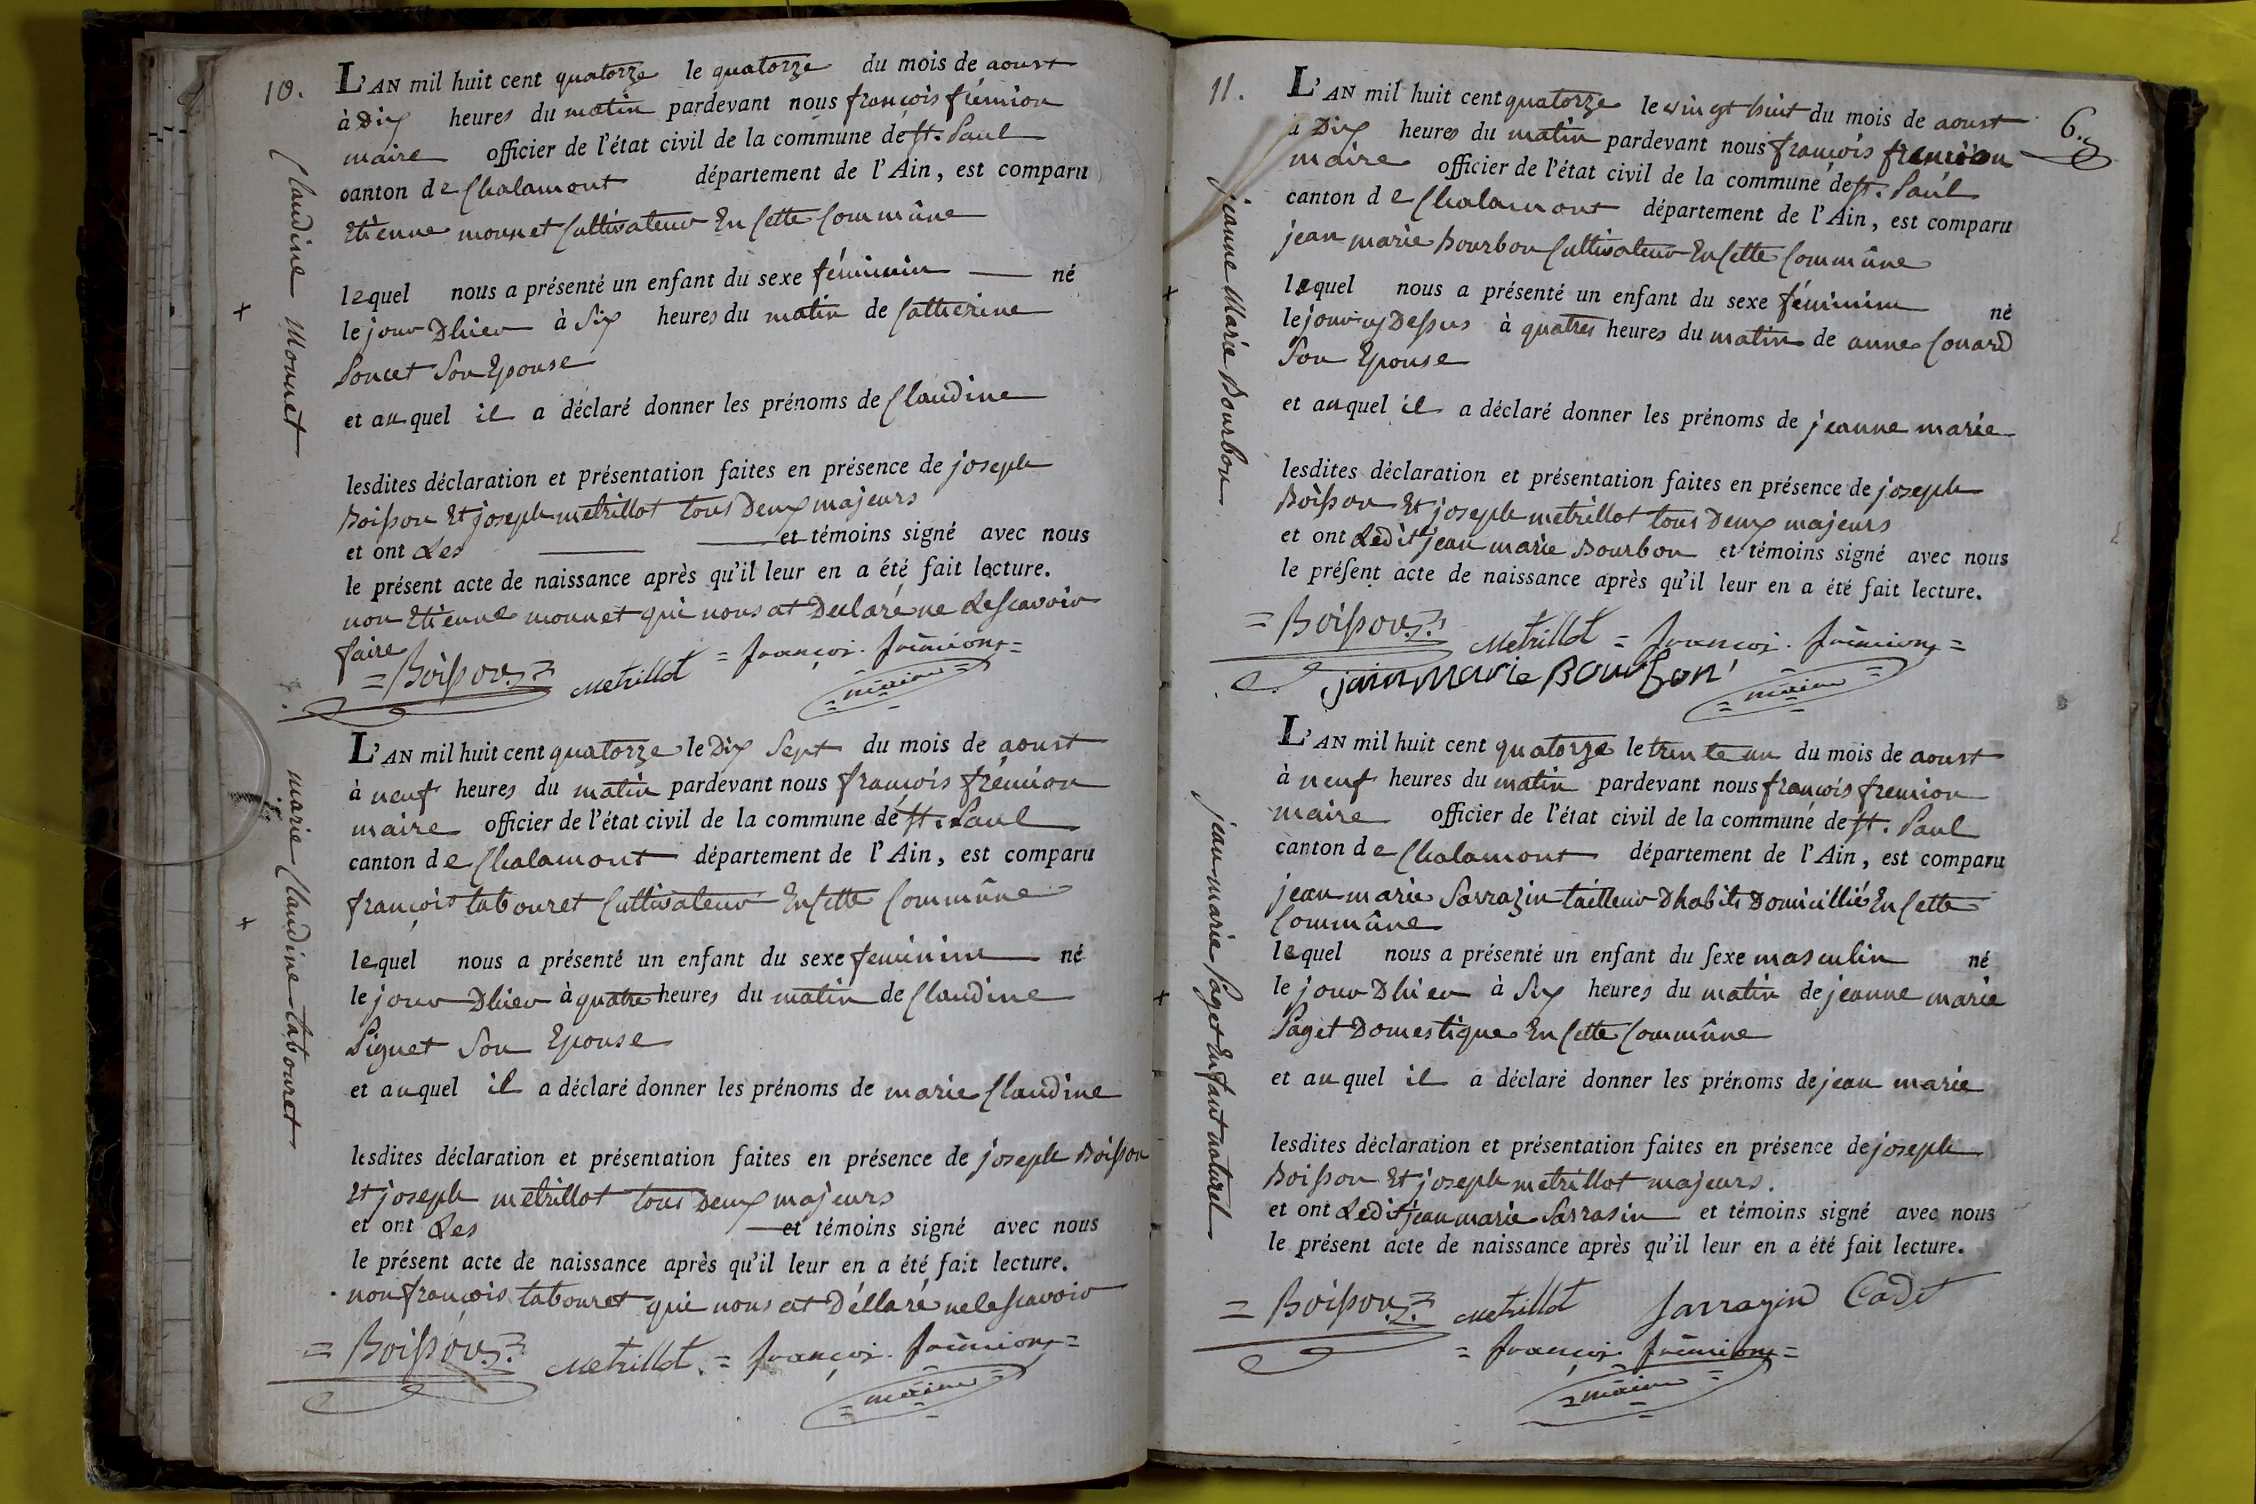 10.
Claudine Monnet
L'AN mil huit cent quatorze le quatorze du mois de aoust
à Dix heures du matin pardevant nous françois frémion
maire officier de l'état civil de la commune de St. Paul
canton de Chalamont département de l'Ain, est comparu
Etienne monnet Cultivateur En Cette Commûne
lequel nous a présenté un enfant du sexe féminin né
le jour Dhier à Six heures du matin de Catherine
Poncet Son Epouse
et auquel il a déclaré donner les prénoms de Claudine
lesdites déclaration et présentation faites en présence de joseph
Boisson Et joseph metrillot tous Deux majeurs
et ont Les et témoins signé avec nous
le présent acte de naissance après qu'il leur en a été fait lecture.
non Etienne monnet qui nous at Declaré ne Lescavoir
faire
= Boisson = Metrillot = françois frémion =
= maire =
marie Claudine tabouret
L'AN mil huit cent quatorze le Dix Sept du mois de aoust
à neuf heures du matin pardevant nous françois frémion
maire officier de l'état civil de la commune de St. Paul
canton de Chalamont département de l'Ain, est comparu
françois tabouret Cultivateur En Cette Commûne
lequel nous a présenté un enfant du sexe feminin né
le jour Dhier à quatre heures du matin de Claudine
Piguet Son Epouse
et auquel il a déclaré donner les prénoms de marie Claudine
lesdites déclaration et présentation faites en présence de joseph Boisson
Et joseph metrillot tous Deux majeurs
et ont Les et témoins signé avec nous
le présent acte de naissance après qu'il leur en a été fait lecture.
non françois tabouret qui nous at Déllaré ne le scavoir
= Boisson = Metrillot = françois frémion =
= maire =
11.
6.
jeanne Marie Bourbon
L'AN mil huit cent quatorze le vingt huit du mois de aoust
à Dix heures du matin pardevant nous françois fremion
maire officier de l'état civil de la commune de St. Paul
canton de Chalamont département de l'Ain, est comparu
jean marie Bourbon Cultivateur En Cette Commûne
lequel nous a présenté un enfant du sexe féminin né
le jour cy Dessus à quatres heures du matin de anne Couard
Son Epouse
et auquel il a déclaré donner les prénoms de jeanne marie
lesdites déclaration et présentation faites en présence de joseph
Boisson Et joseph metrillot tous Deux majeurs
et ont Ledit jean marie Bourbon et témoins signé avec nous
le présent acte de naissance après qu'il leur en a été fait lecture.
= Boisson = Metrillot = françois frémion =
jean Marie Bourbon
= maire =
jean marie Paget Enfant naturel
L'AN mil huit cent quatorze le trente un du mois de aoust
à neuf heures du matin pardevant nous françois fremion
maire officier de l'état civil de la commune de St. Paul
canton de Chalamont département de l'Ain, est comparu
jean marie Sarrazin tailleur Dhabits Domicillié En Cette
Commûne
lequel nous a présenté un enfant du sexe masculin né
le jour Dhier à Six heures du matin de jeanne marie
Paget Domestique En Cette Commûne
et auquel il a déclaré donner les prénoms de jean marie
lesdites déclaration et présentation faites en présence de joseph
Boisson Et joseph metrillot majeurs.
et ont Ledit jean marie Sarrasin et témoins signé avec nous
le présent acte de naissance après qu'il leur en a été fait lecture.
= Boisson = Metrillot Sarrazin Cadet
= françois frémion =
= maire =